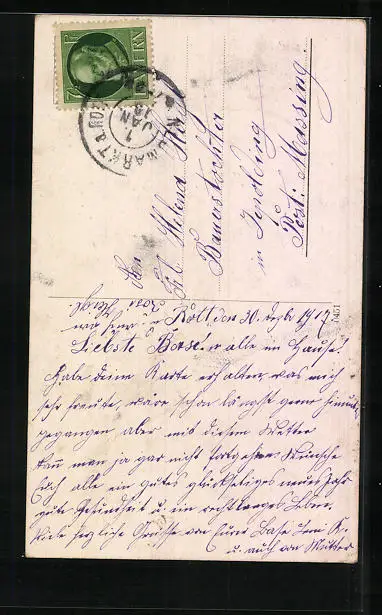 7½ Pf BAYERN
NEUMARKT a. ROTT
1 JAN 18
An
Frl. Helena
Bauerstochter
in
Post: Massing.
Rott den 30. Dezb. 1917
Liebste Base! u. alle im Hause!
Habe deine Karte erhalten, was mich
sehr freute, wäre schon längst gerne hinunter
gegangen aber mit diesem Wetter
kann man ja gar nicht fortgehen. Wünsche
Euch alle ein gutes glückseliges neues Jahr
gute Gesundheit u. ein recht langes Leben.
Viele herzliche Grüsse von Eurer Base
u. auch von Mutter